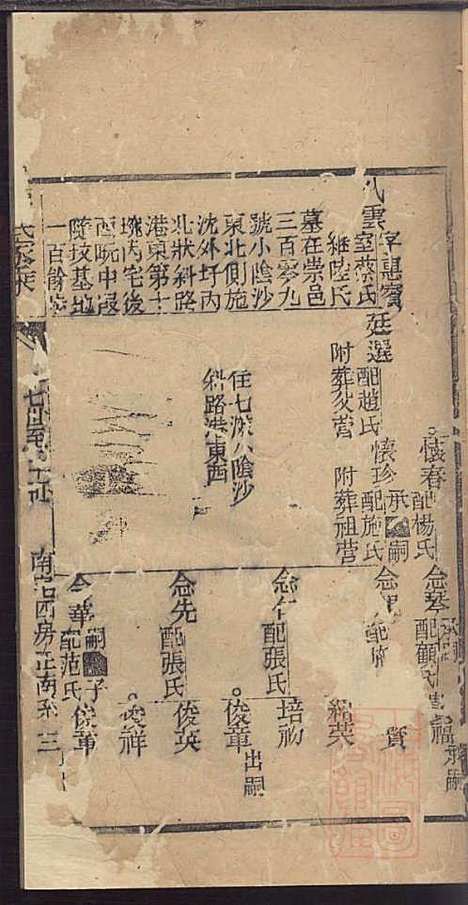 雲
字惠賓
室蔡氏
繼陸氏
墓在崇邑
三百零九
號小陰沙
東北側施
沈外圩内
北狀斜路
港東第十
堍内宅後
西阮中段
隨技基地
一百餘步
廷選
配趙氏
附葬父塋
懷珍
承嗣
配施氏
附葬祖塋
住七滧小陰沙
斜路港東西
懷春
配楊氏
念琴
配顧氏
福
承嗣
念
配
賓
錦英
念仁
配張氏
培初
俊章
出嗣
念先
配張氏
俊英
俊祥
念華
嗣子
配范氏
俊章
七世至十一世
南沿西房正南系
三